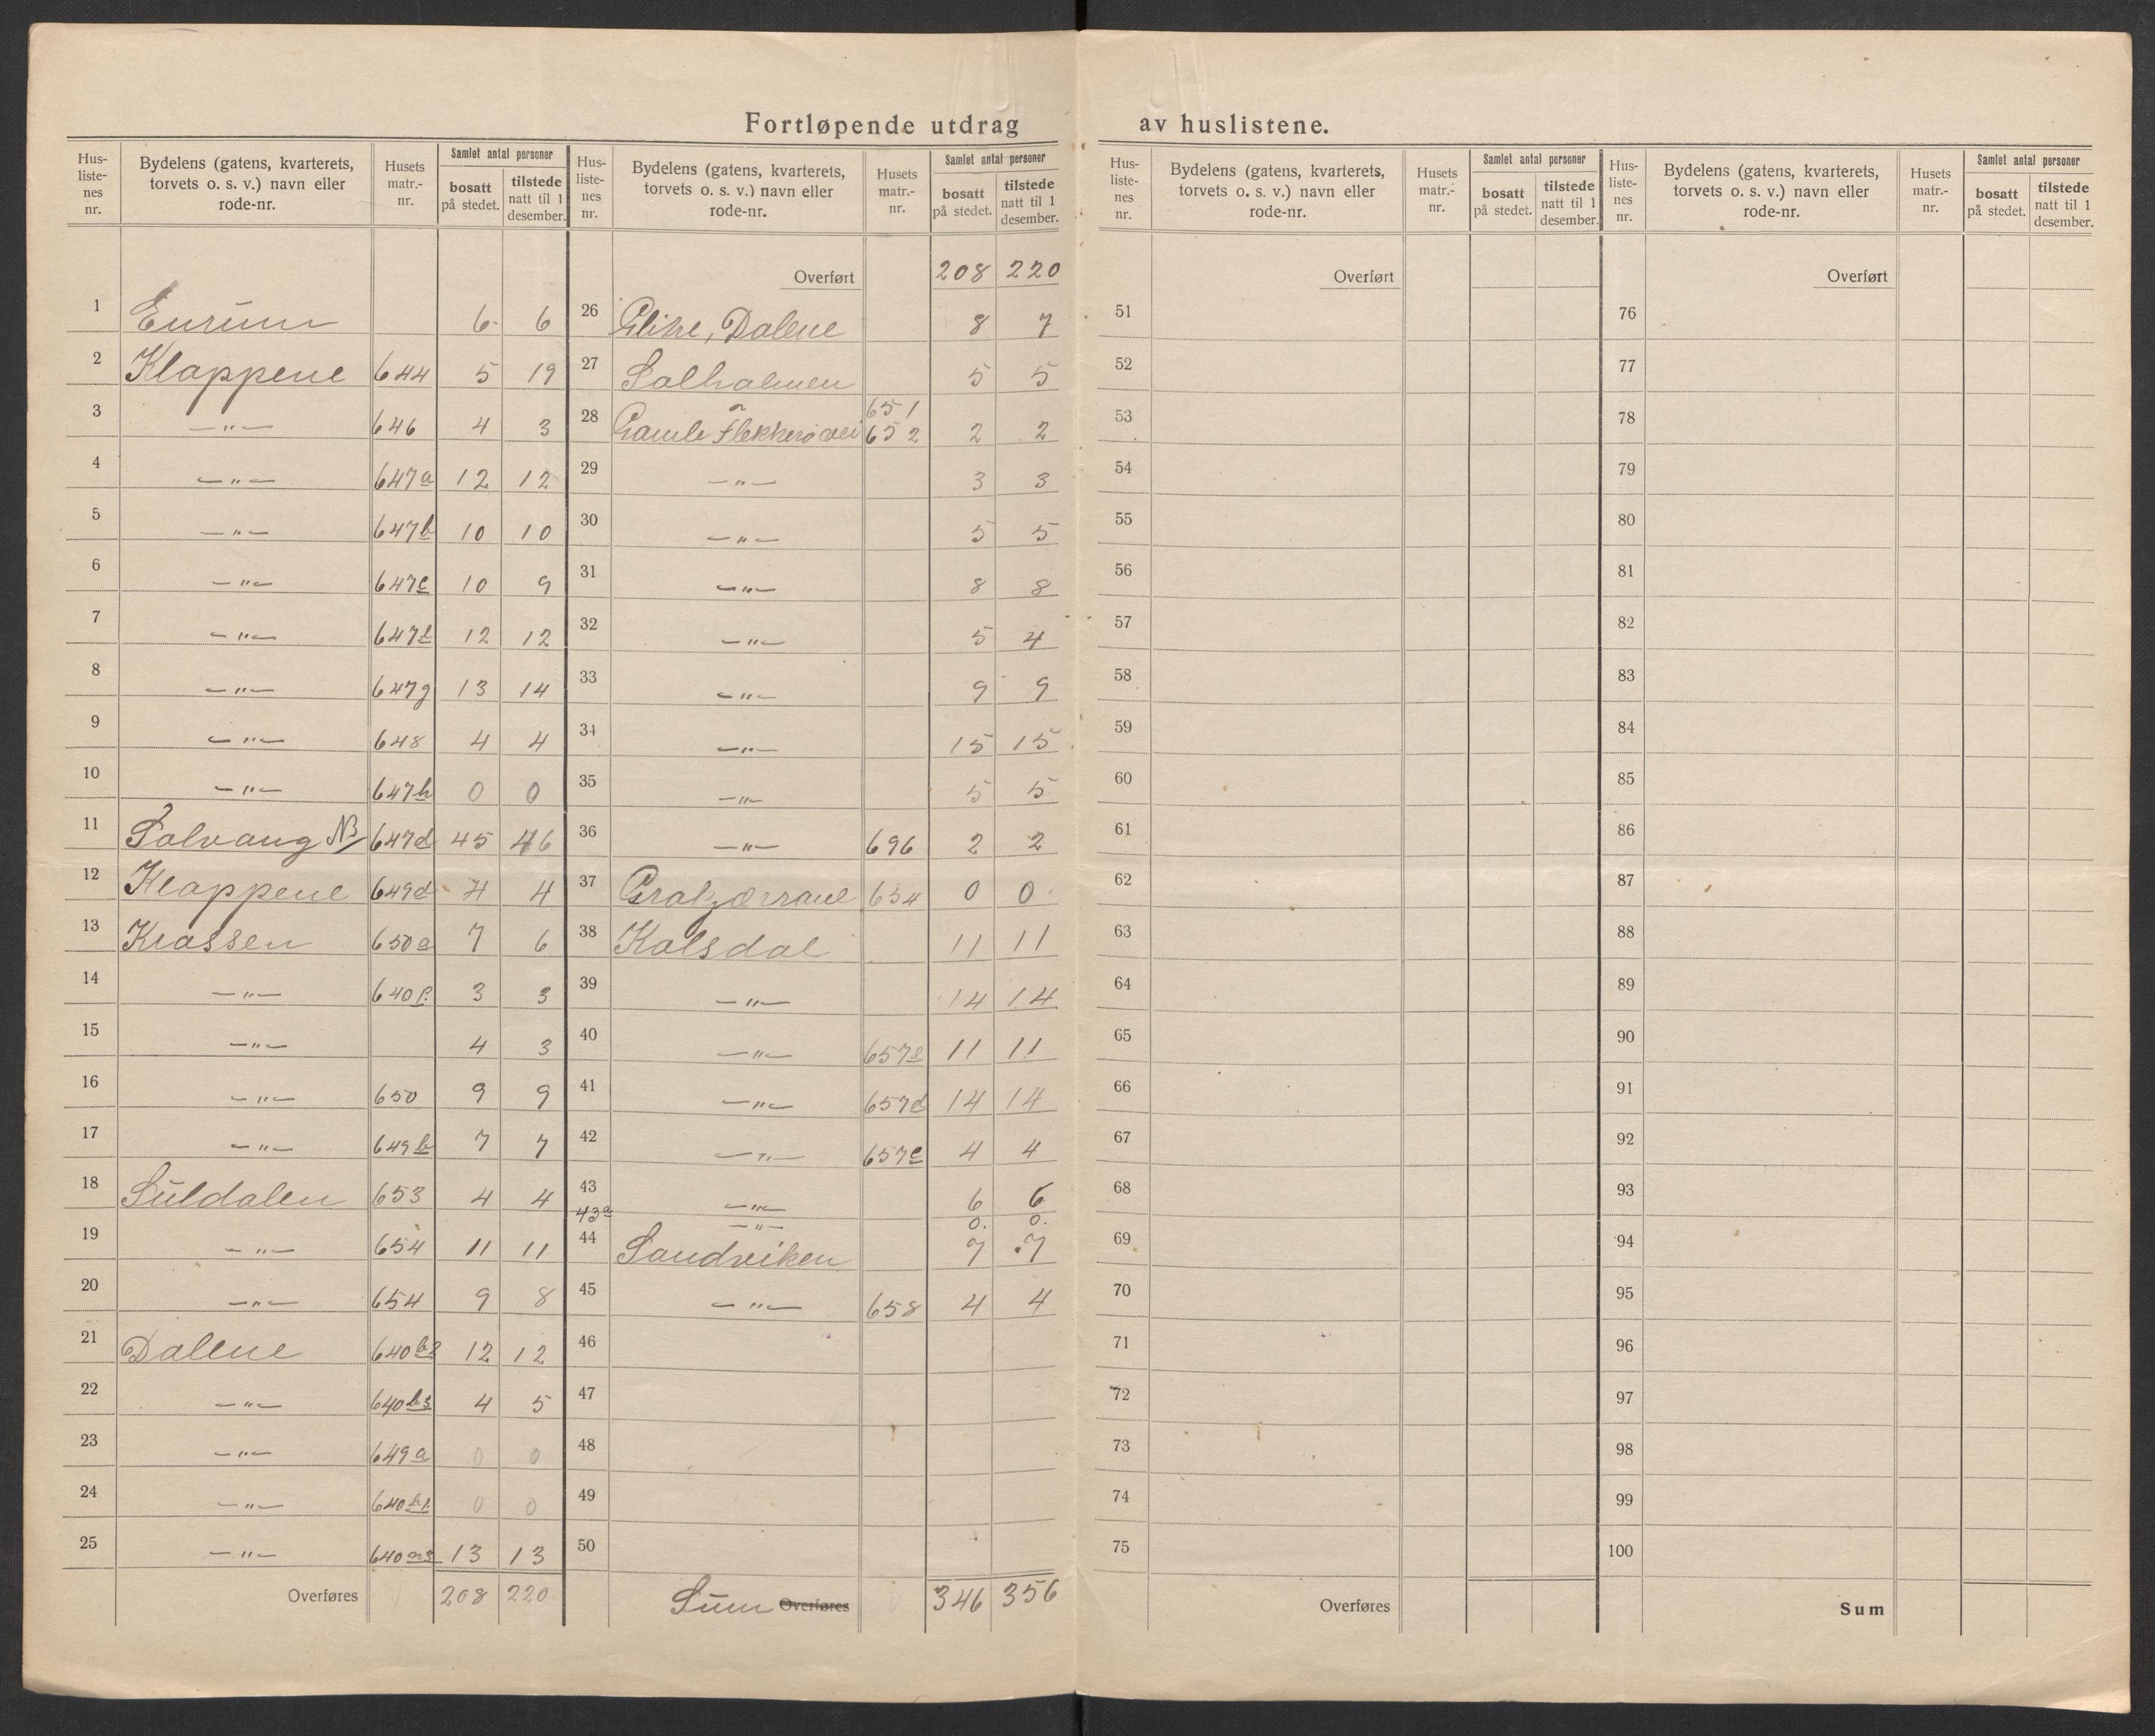 Fortløpende utdrag av huslistene.
Hus-listenes nr. Bydelens (gatens, kvarterets, torvets o. s. v.) navn eller rode-nr. Husets matr.-nr. Samlet antal personer bosatt på stedet. tilstede natt til 1 desember.
1 Eurum 6 6
2 Klappene 644 5 19
3 —"— 646 4 3
4 —"— 647a 12 12
5 —"— 647b 10 10
6 —"— 647c 10 9
7 —"— 647f 12 12
8 —"— 647g 13 14
9 —"— 648 4 4
10 —"— 647h 0 0
11 Solvang NB 647d 45 46
12 Klappene 649d 4 4
13 Krossen 650a 7 6
14 —"— 640 3 3
15 —"— 4 3
16 —"— 650 9 9
17 —"— 649b 7 7
18 Suldalen 653 4 4
19 —"— 654 11 11
20 —"— 654 9 8
21 Dalene 640b2 12 12
22 —"— 640b3 4 5
23 —"— 649a 0 0
24 —"— 640b1 0 0
25 —"— 640 13 13
Overføres 208 220
Hus-listenes nr. Bydelens (gatens, kvarterets, torvets o. s. v.) navn eller rode-nr. Husets matr.-nr. Samlet antal personer bosatt på stedet. tilstede natt til 1 desember.
Overført 208 220
26 Glitre, Dalene 8 7
27 Solholmen 5 5
28 Gamle Flekkerøvei 651 652 2 2
29 —"— 3 3
30 —"— 5 5
31 —"— 8 8
32 —"— 5 4
33 —"— 9 9
34 —"— 15 15
35 —"— 5 5
36 —"— 696 2 2
37 654 0 0
38 Kolsdal 11 11
39 —"— 14 14
40 —"— 657 11 11
41 —"— 657d 14 14
42 —"— 657c 4 4
43 —"— 6 6
43a —"— 0. 0.
44 Sandviken 7 7
45 —"— 658 4 4
46
47
48
49
50
Sum Overføres 346 356
Hus-listenes nr. Bydelens (gatens, kvarterets, torvets o. s. v.) navn eller rode-nr. Husets matr.-nr. Samlet antal personer bosatt på stedet. tilstede natt til 1 desember.
Overført
51
52
53
54
55
56
57
58
59
60
61
62
63
64
65
66
67
68
69
70
71
72
73
74
75
Overføres
Hus-listenes nr. Bydelens (gatens, kvarterets, torvets o. s. v.) navn eller rode-nr. Husets matr.-nr. Samlet antal personer bosatt på stedet. tilstede natt til 1 desember.
Overført
76
77
78
79
80
81
82
83
84
85
86
87
88
89
90
91
92
93
94
95
96
97
98
99
100
Sum